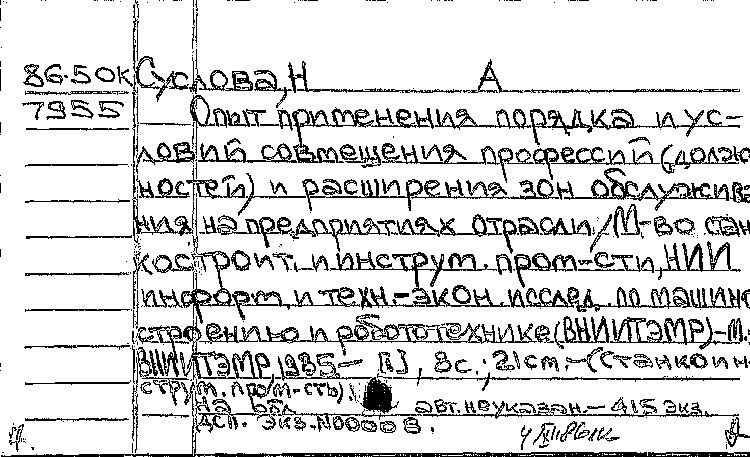 86-50К Суслова, Н А
7955 Опыт применения порядка и ус-
ловий совмещения профессий (долж
ностей) и расширения зон обслужива
ния на предприятиях отрасли / М-во стан
костроит. и инструм. пром-сти, НИИ
информ. и техн.-экон. исслед. по машино
строению и робототехнике (ВНИИТЭМР)-М.:
ВНИИТЭМР, 1985.- [1], 8 с.; 21 см.-(Станкоин-
струм. пром-сть).
На обл. авт. не указан.- 415 экз.
ДСП. Экз. N00008.